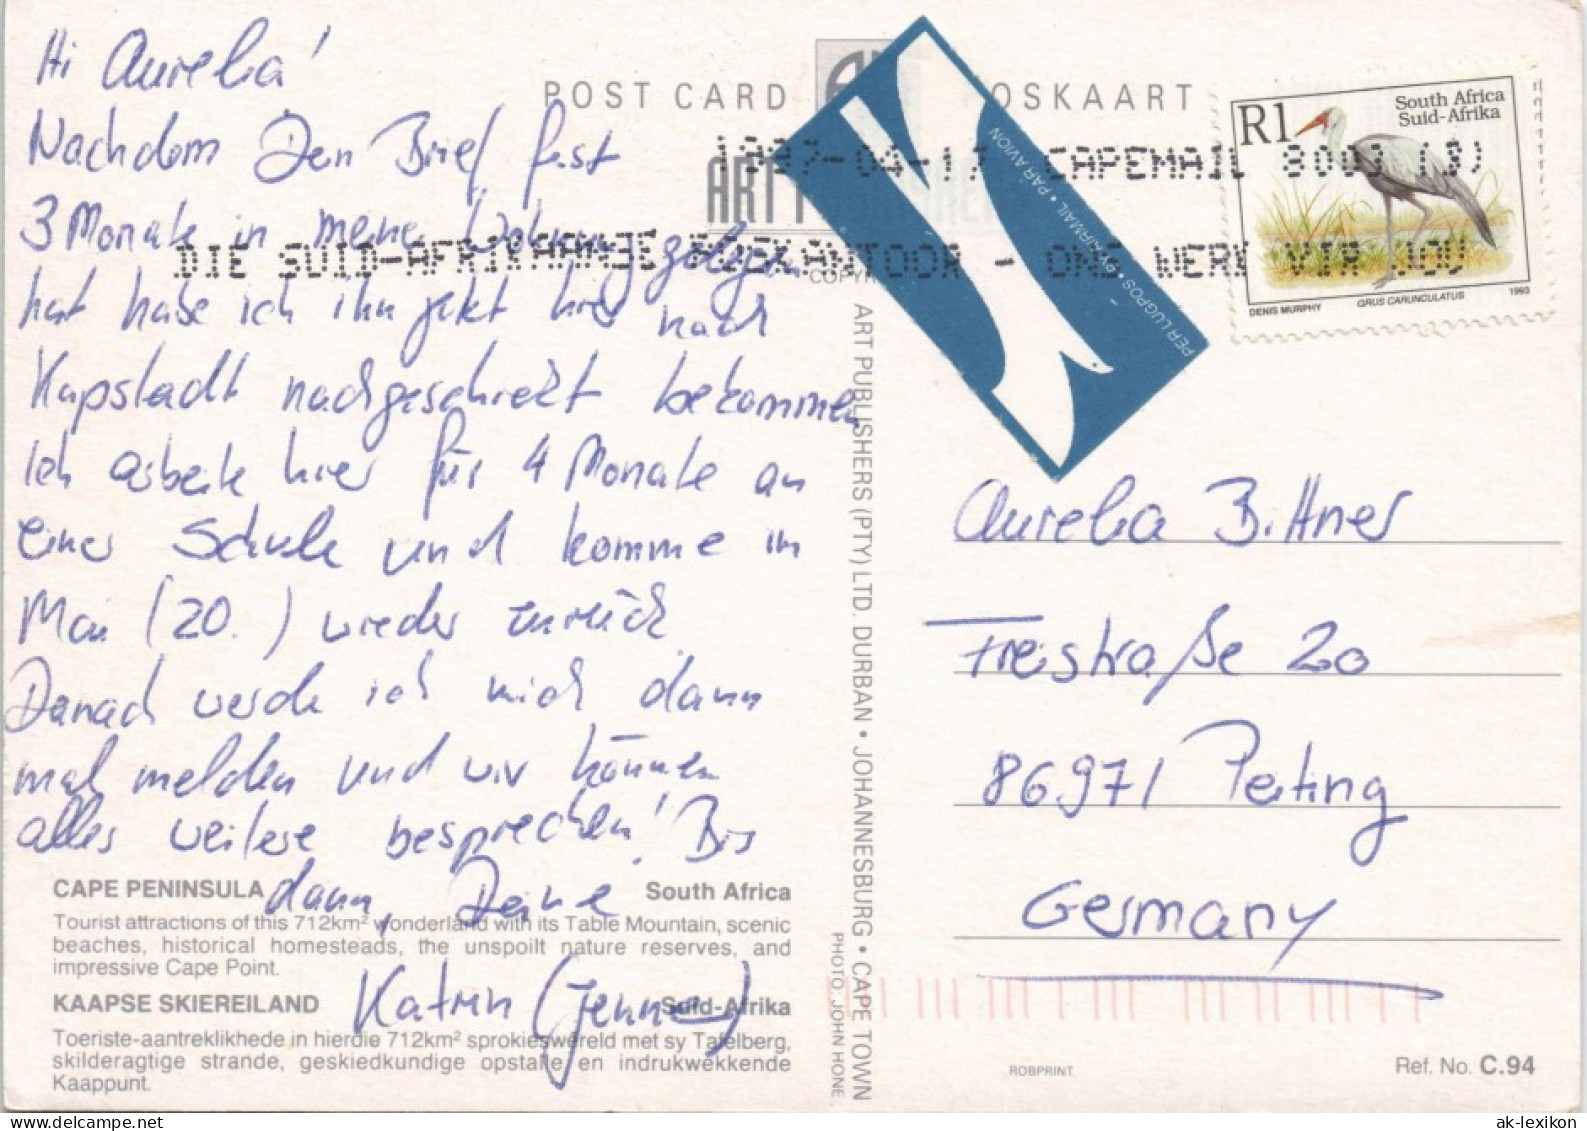 Hi Aurelia!
Nachdem Dein Brief fast
3 Monate in meiner Wohnung gelegen
hat habe ich ihn jetzt hier nach
Kapstadt nachgeschickt bekommen
Ich arbeite hier für 4 Monate an
einer Schule und komme im
Mai (20.) wieder zurück.
Danach werde ich mich dann
mal melden und wir können
alles weitere besprechen! Bis
dann, Deine
Katrin (Jenne)
CAPE PENINSULA South Africa
Tourist attractions of this 712km² wonderland with its Table Mountain, scenic
beaches, historical homesteads, the unspoilt nature reserves, and
impressive Cape Point.
KAAPSE SKIEREILAND Suid-Afrika
Toeriste-aantreklikhede in hierdie 712km² sprokieswêreld met sy Tafelberg,
skilderagtige strande, geskiedkundige opstalle en indrukwekkende
Kaappunt.
POST CARD POSKAART
ART
1997-04-17 CAPEMAIL 8003 (3)
DIE SUID-AFRIKAANSE POSKANTOOR - ONS WERK VIR JOU
PER LUGPOS • BY AIRMAIL • PAR AVION
R1
South Africa
Suid-Afrika
DENIS MURPHY GRUS CARUNCULATUS 1993
ART PUBLISHERS (PTY) LTD. DURBAN • JOHANNESBURG • CAPE TOWN
PHOTO: JOHN HONE
Aurelia Bittner
Freistraße 20
86971 Peiting
Germany
ROBPRINT
Ref. No. C.94
ak-lexikon